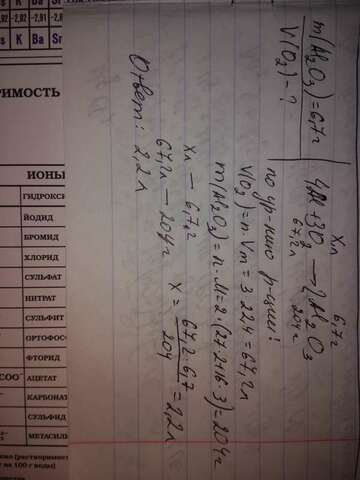 m(Al₂O₃)=6,7г
V(O₂) - ?
Xл 6,7г
4Al+3O₂ → 2Al₂O₃
67,2л 204г
по ур-нию р-ции:
V(O₂)=n·Vm=3·22,4=67,2л
m(Al₂O₃)=n·M=2·(27·2+16·3)=204г
Xл — 6,7г
67,2л — 204г
X = 67,2·6,7 / 204 = 2,2л
Ответ: 2,2л
-2,92 -2,91 -2,8
K Ba Sr
ИОНЫ
ГИДРОКС
ЙОДИД
БРОМИД
ХЛОРИД
СУЛЬФАТ
НИТРАТ
СУЛЬФИТ
ОРТОФОС
ФТОРИД
COO⁻ АЦЕТАТ
КАРБОНАТ
СУЛЬФИД
МЕТАСИЛИ
г на 100 г воды)